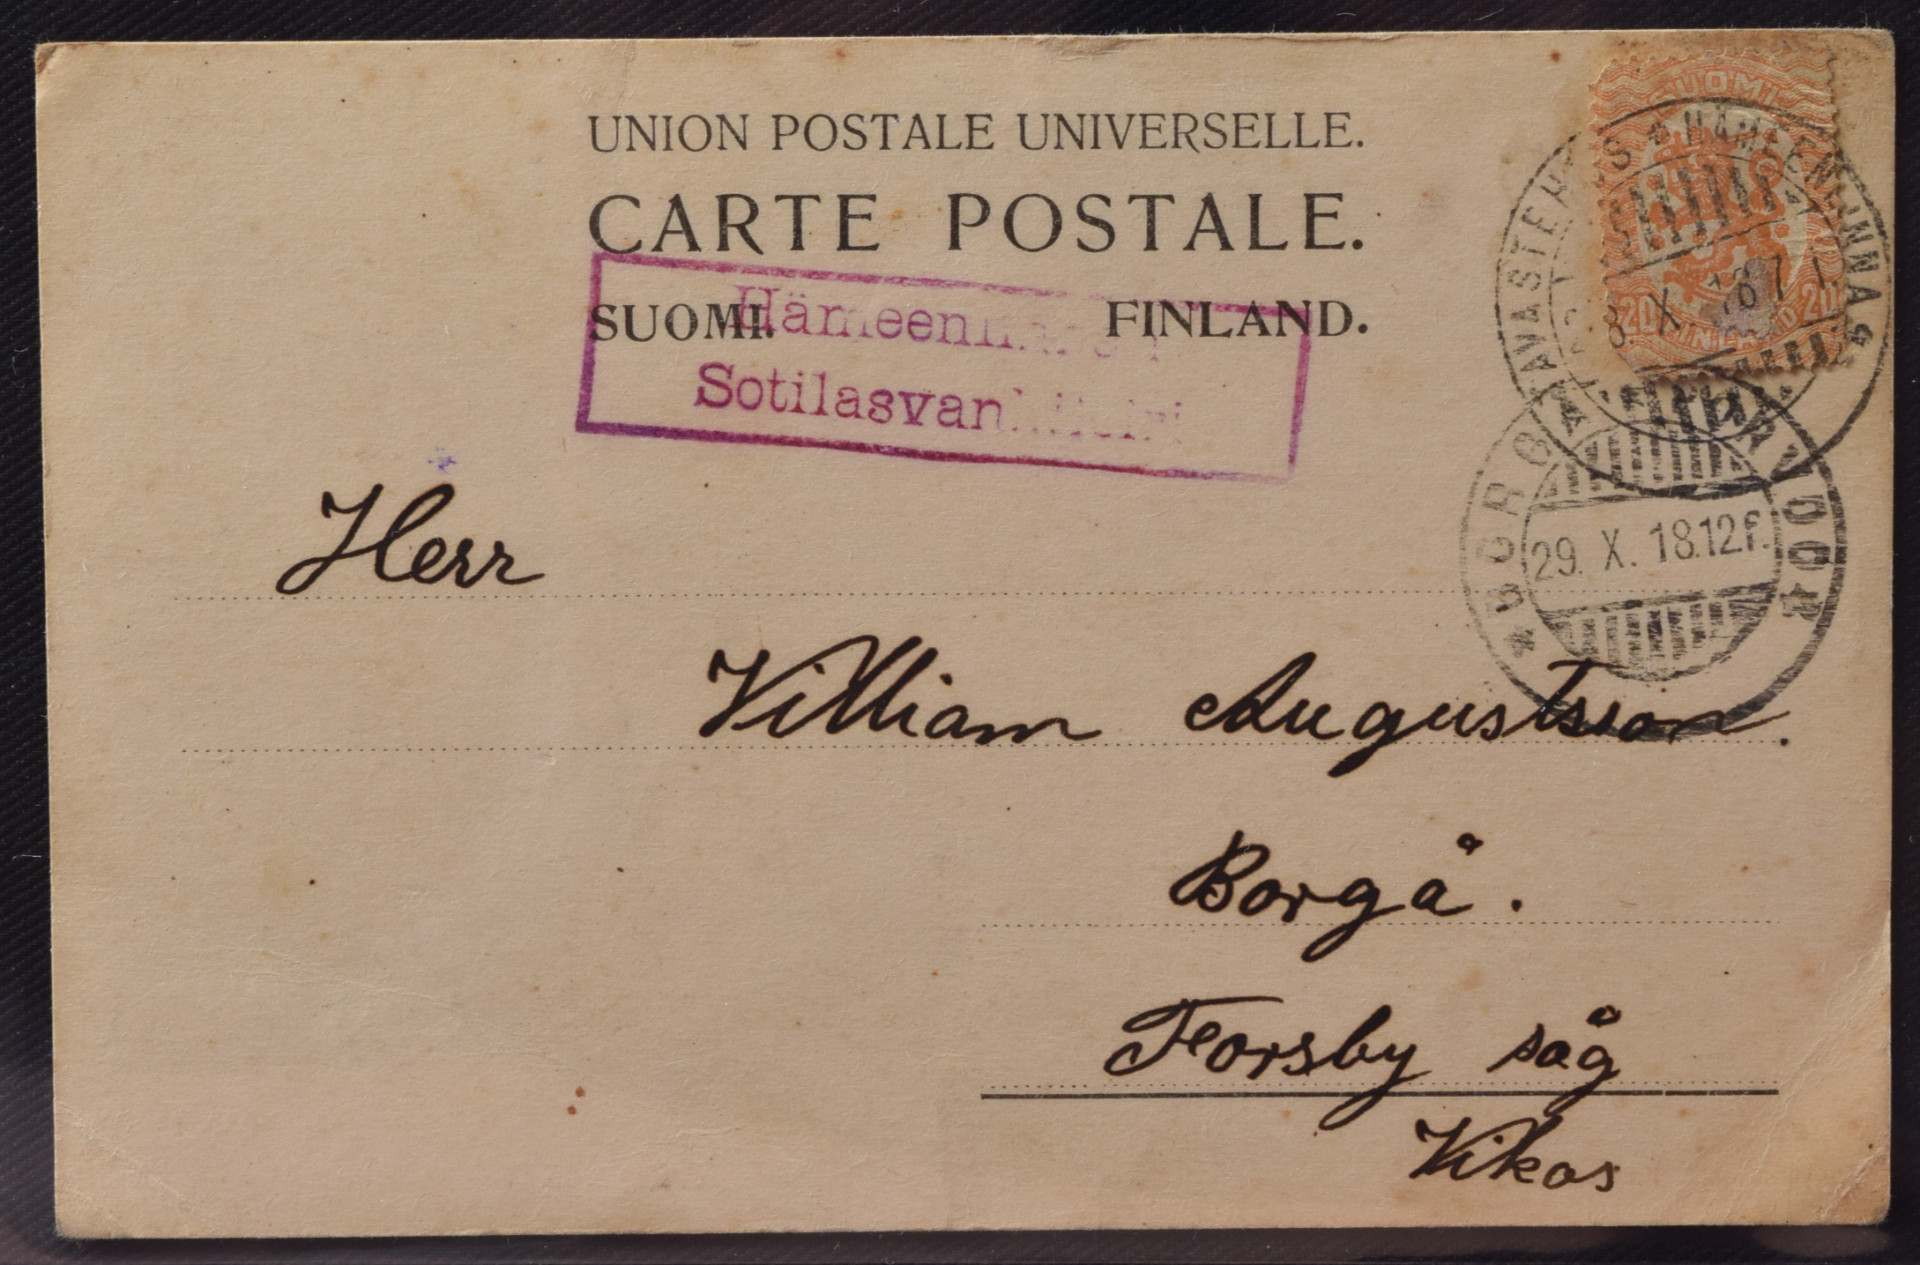 UNION POSTALE UNIVERSELLE.
CARTE POSTALE.
SUOMI. FINLAND.
Sotilasvan
SUOMI
20 20
FINLAND
TAVASTEHUS HÄMEENLINNA
X 18
BORGÅ PORVOO
29. X. 18.12 f.
Herr
Villiam Augustsson.
Borgå.
Forsby såg
Vikas